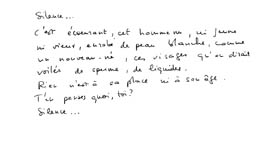 Silence...
C'est écœurant, cet homme nu, ni jeune
ni vieux, enrobé de peau blanche, comme
un nouveau-né, ces visages qu'on dirait
voilés de sperme, de liquides.
Rien n'est à sa place ni à son âge.
T'en penses quoi, toi ?
Silence...